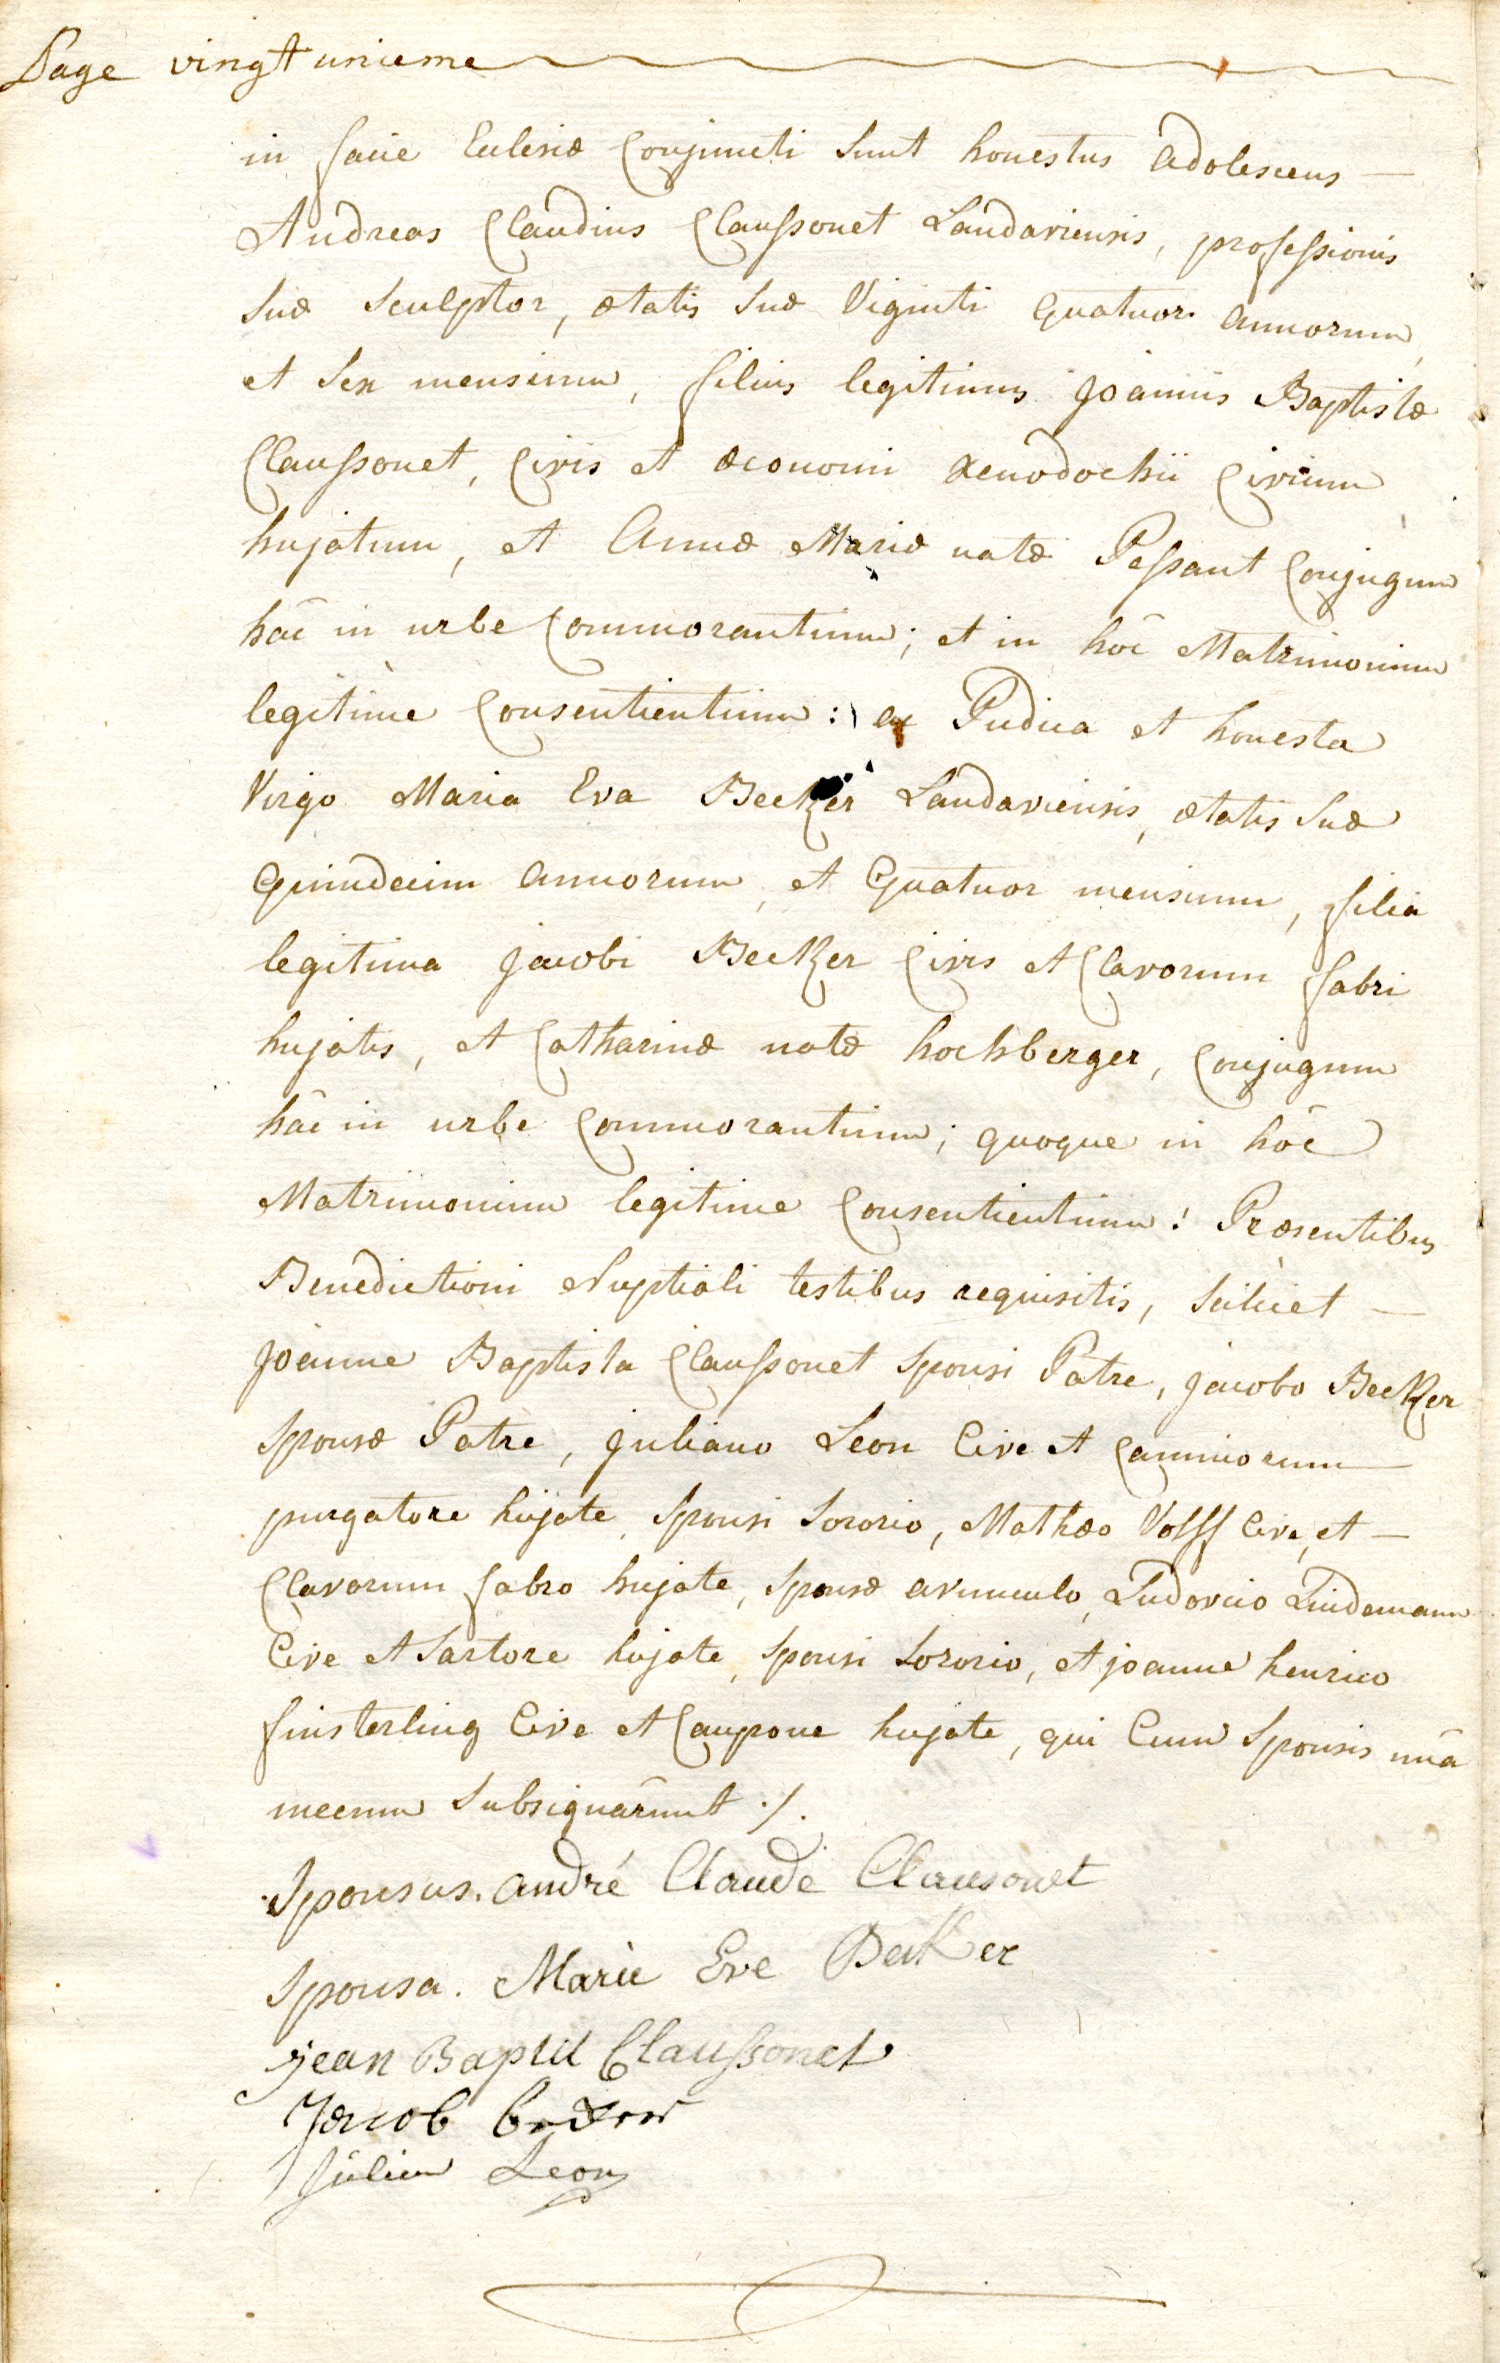 Page vingt unieme
in facie Ecclesiæ Conjuncti Sunt honestus adolescens —
Andreas Claudius Claussonet Landaviensis, professionis
Suæ Sculptor, ætatis Suæ Viginti Quatuor annorum,
et Sex mensium, filius legitimus Joannis Baptistæ
Claussonet, Civis et œconomi Xenodochii Civium
hujatum, et Annæ Mariæ natæ Pessant Conjugum
hâc in urbe Commorantium; et in hôc Matrimonium
legitimè Consentientium: et Pudica et honesta
Virgo Maria Eva Becker Landaviensis, ætatis Suæ
Quindecim annorum, et Quatuor mensium, filia
legitima Jacobi Becker Civis et Clavorum fabri
hujatis, et Catharinæ natæ hochberger, Conjugum
hâc in urbe Commorantium; quoque in hôc
Matrimonium legitime Consentientium! Præsentibus
Benedictioni Nuptiali testibus requisitis, Scilicet —
Joanne Baptista Claussonet Sponsi Patre, Jacobo Becker
Sponsæ Patre, Juliano Leon Cive et Caminorum —
purgatore hujate, Sponsi Sororio, Mathæo Volff Cive, et —
Clavorum fabro hujate, Sponsæ avunculo, Ludovico Lindemann
Cive et Sartore hujate, Sponsi Sororio, et joanne henrico
finsterling Cive et Caupone hujate, qui Cum Sponsis unâ
mecum Subsignârunt ./.
Sponsus. andré Claude Clausonet
Sponsa. Marie Eve Becker
jean Baptit Claussonet
Jacob becker
Julien Leon